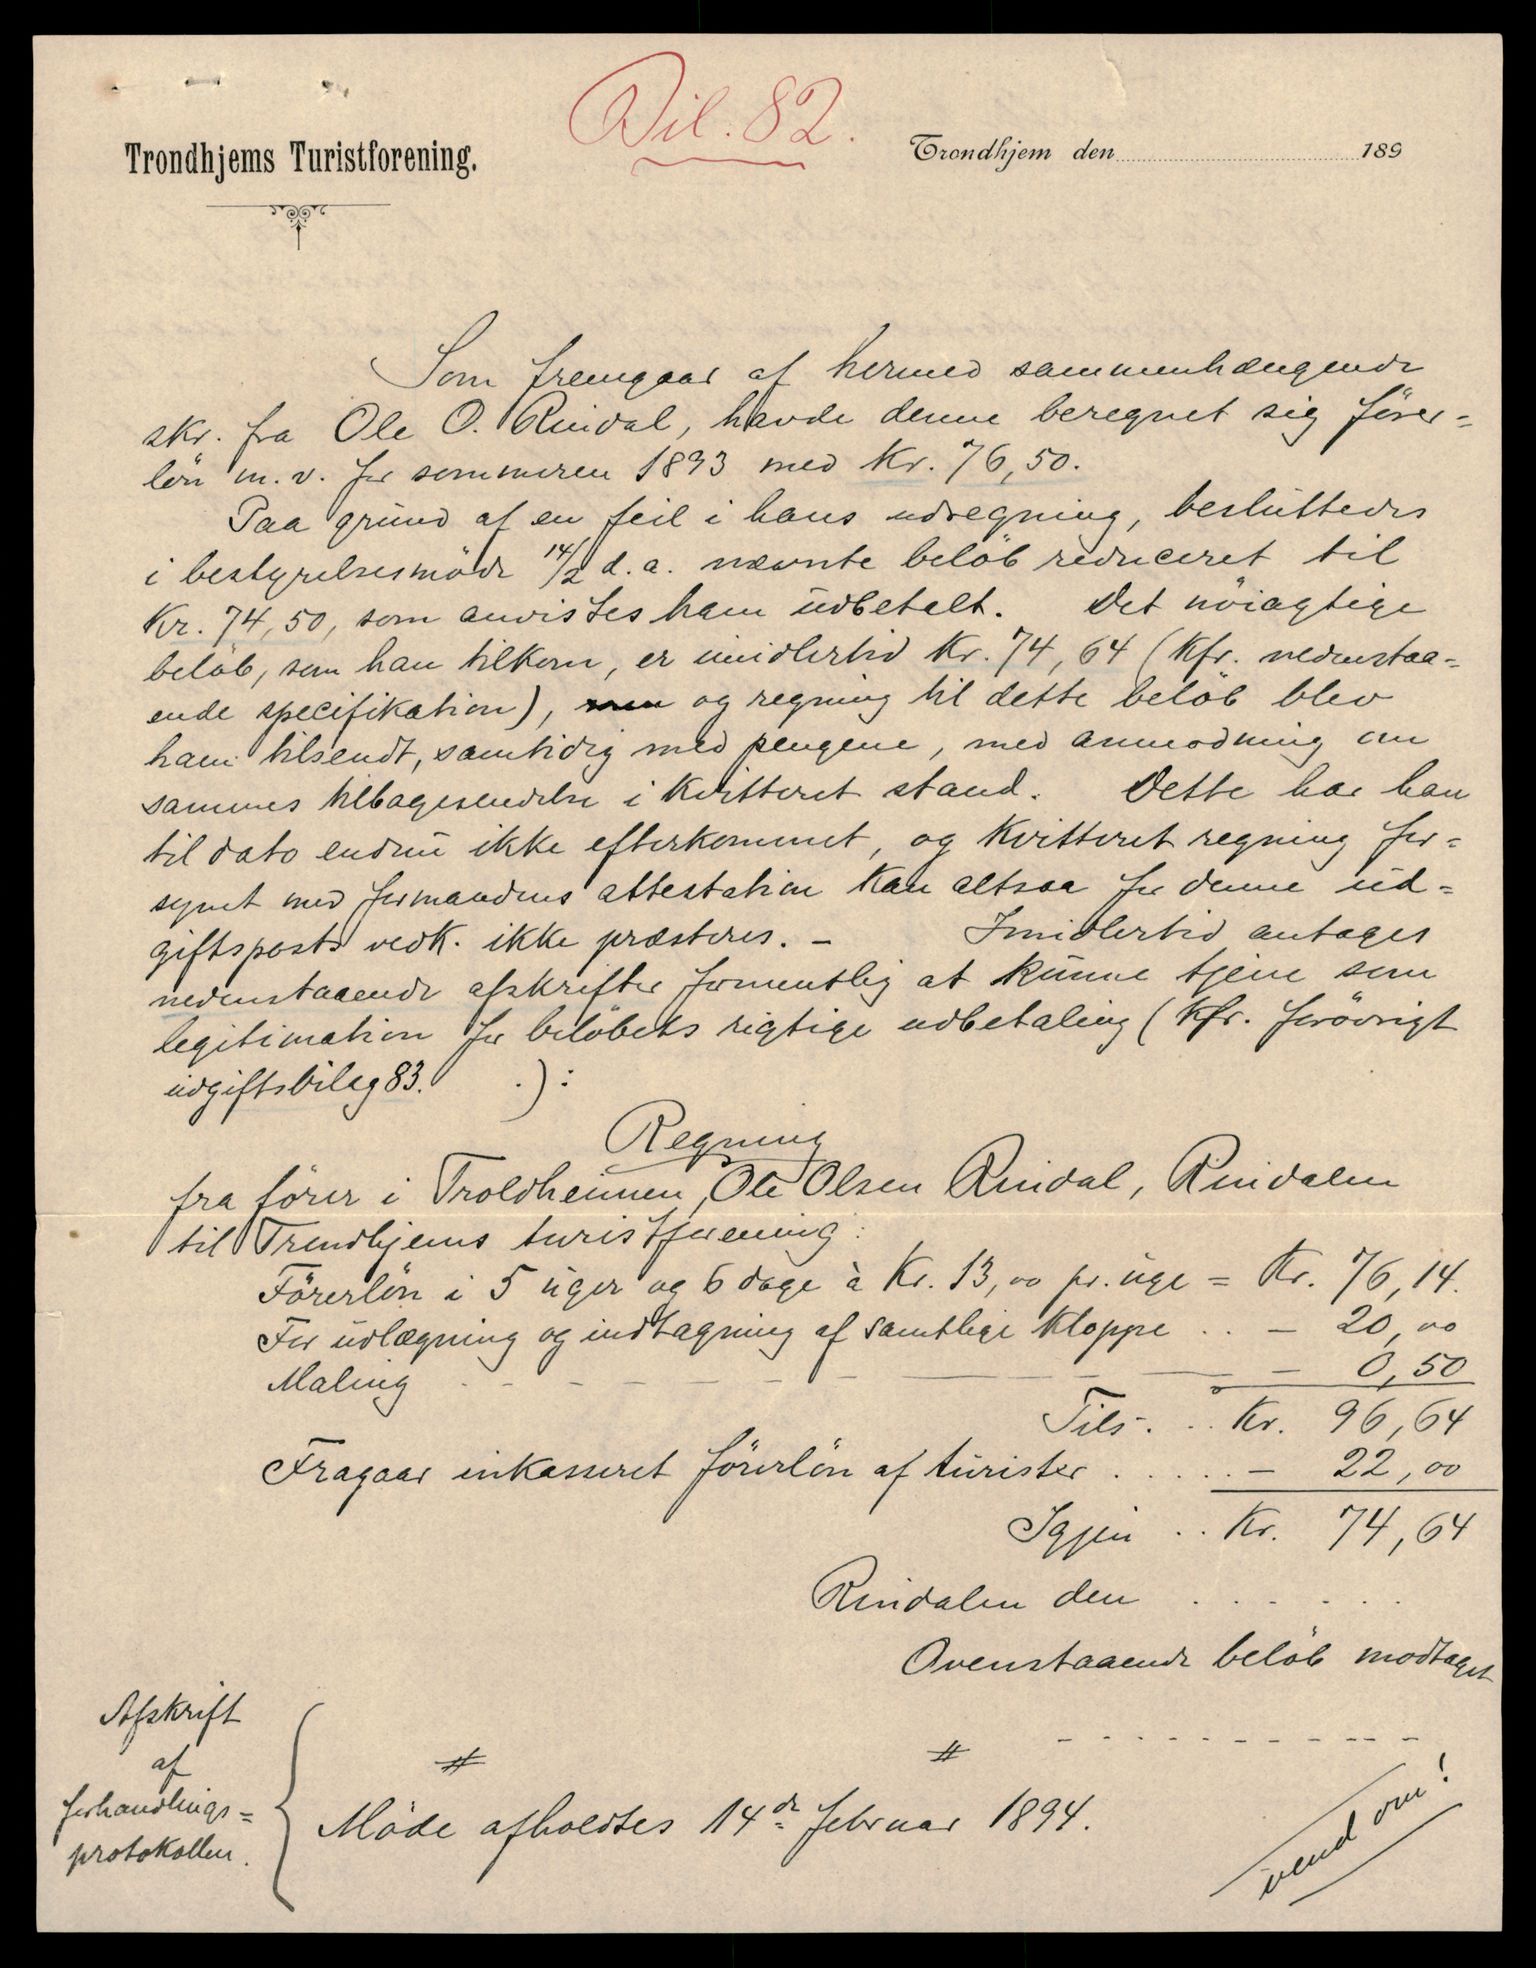 Bil. 82.
Trondhjems Turistforening.
Trondhjem den 189
Som fremgaar af hermed sammenhængende
skr. fra Ole O. Rindal, havde denne beregnet sig förer-
lön m. v. for sommeren 1893 med Kr. 76,50.
Paa grund af en feil i hans udregning, besluttedes
i bestyrelsesmöde 14/2 d. a. nævnte belöb reduceret til
Kr. 74,50, som anvistes ham udbetalt. Det nöiagtige
belöb, som han tilkom, er imidlertid Kr. 74,64 (Kfr. nedenstaa-
ende specifikation), og regning til dette belöb blev
ham tilsendt, samtidig med pengene, med anmodning om
sammes tilbagesendelse i kvitteret stand. Dette har han
til dato endnu ikke efterkommet, og kvitteret regning for-
synet med formandens attestation kan altsaa for denne ud-
giftsposts vedk. ikke præsteres. – Imidlertid antages
nedenstaaende afskrifter formentlig at kunne tjene som
legitimation for belöbets rigtige udbetaling (Kfr. forövrigt
udgiftsbilag 83. .):
Regning
fra förer i Troldheimen, Ole Olsen Rindal, Rindalen
til Trondhjems turistforening:
Förerlön i 5 uger og 6 dage à Kr. 13,00 pr. uge = Kr. 76,14.
For udlægning og indtagning af samtlige kloppe . . – 20,00
Maling – 0,50
Tils. . . Kr. 96,64
Fragaar inkasseret förerlön af turister . . . . . – 22,00
Igjen . . Kr. 74,64
Rindalen den . . . . . .
Ovenstaaende belöb modtaget
Afskrift
af
forhandlings-
protokollen.
Möde afholdtes 14de februar 1894.
vend om!